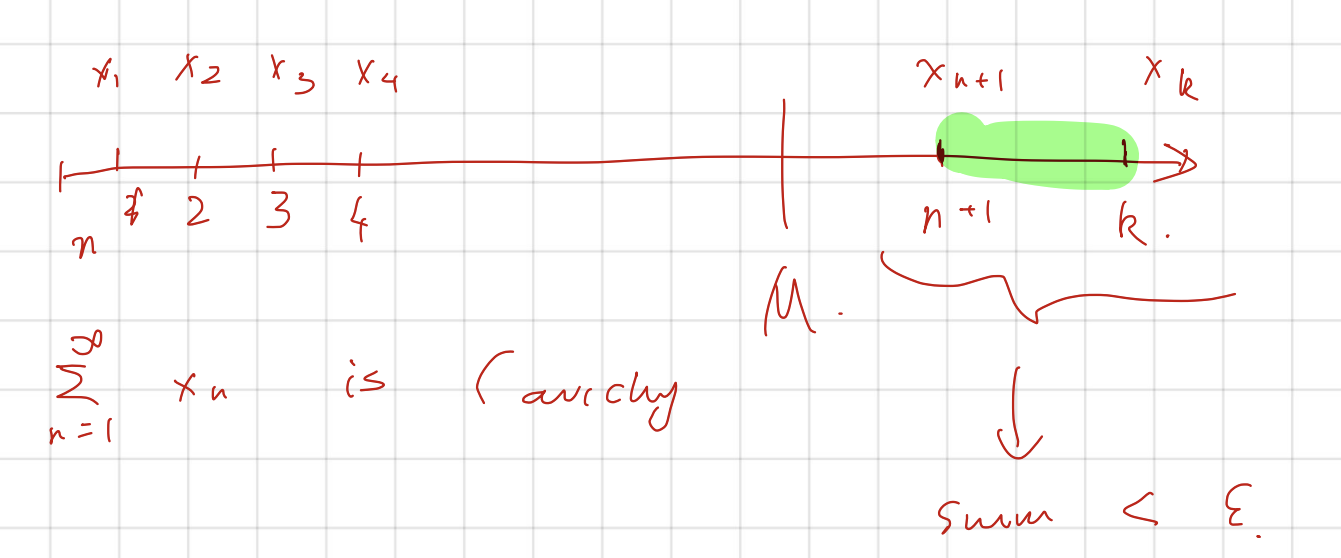 x₁ x₂ x₃ x₄ xₙ₊₁ x_k
1 2 3 4 n+1 k.
n
M.
∞
∑ xₙ is Cauchy
n=1
sum < ε.